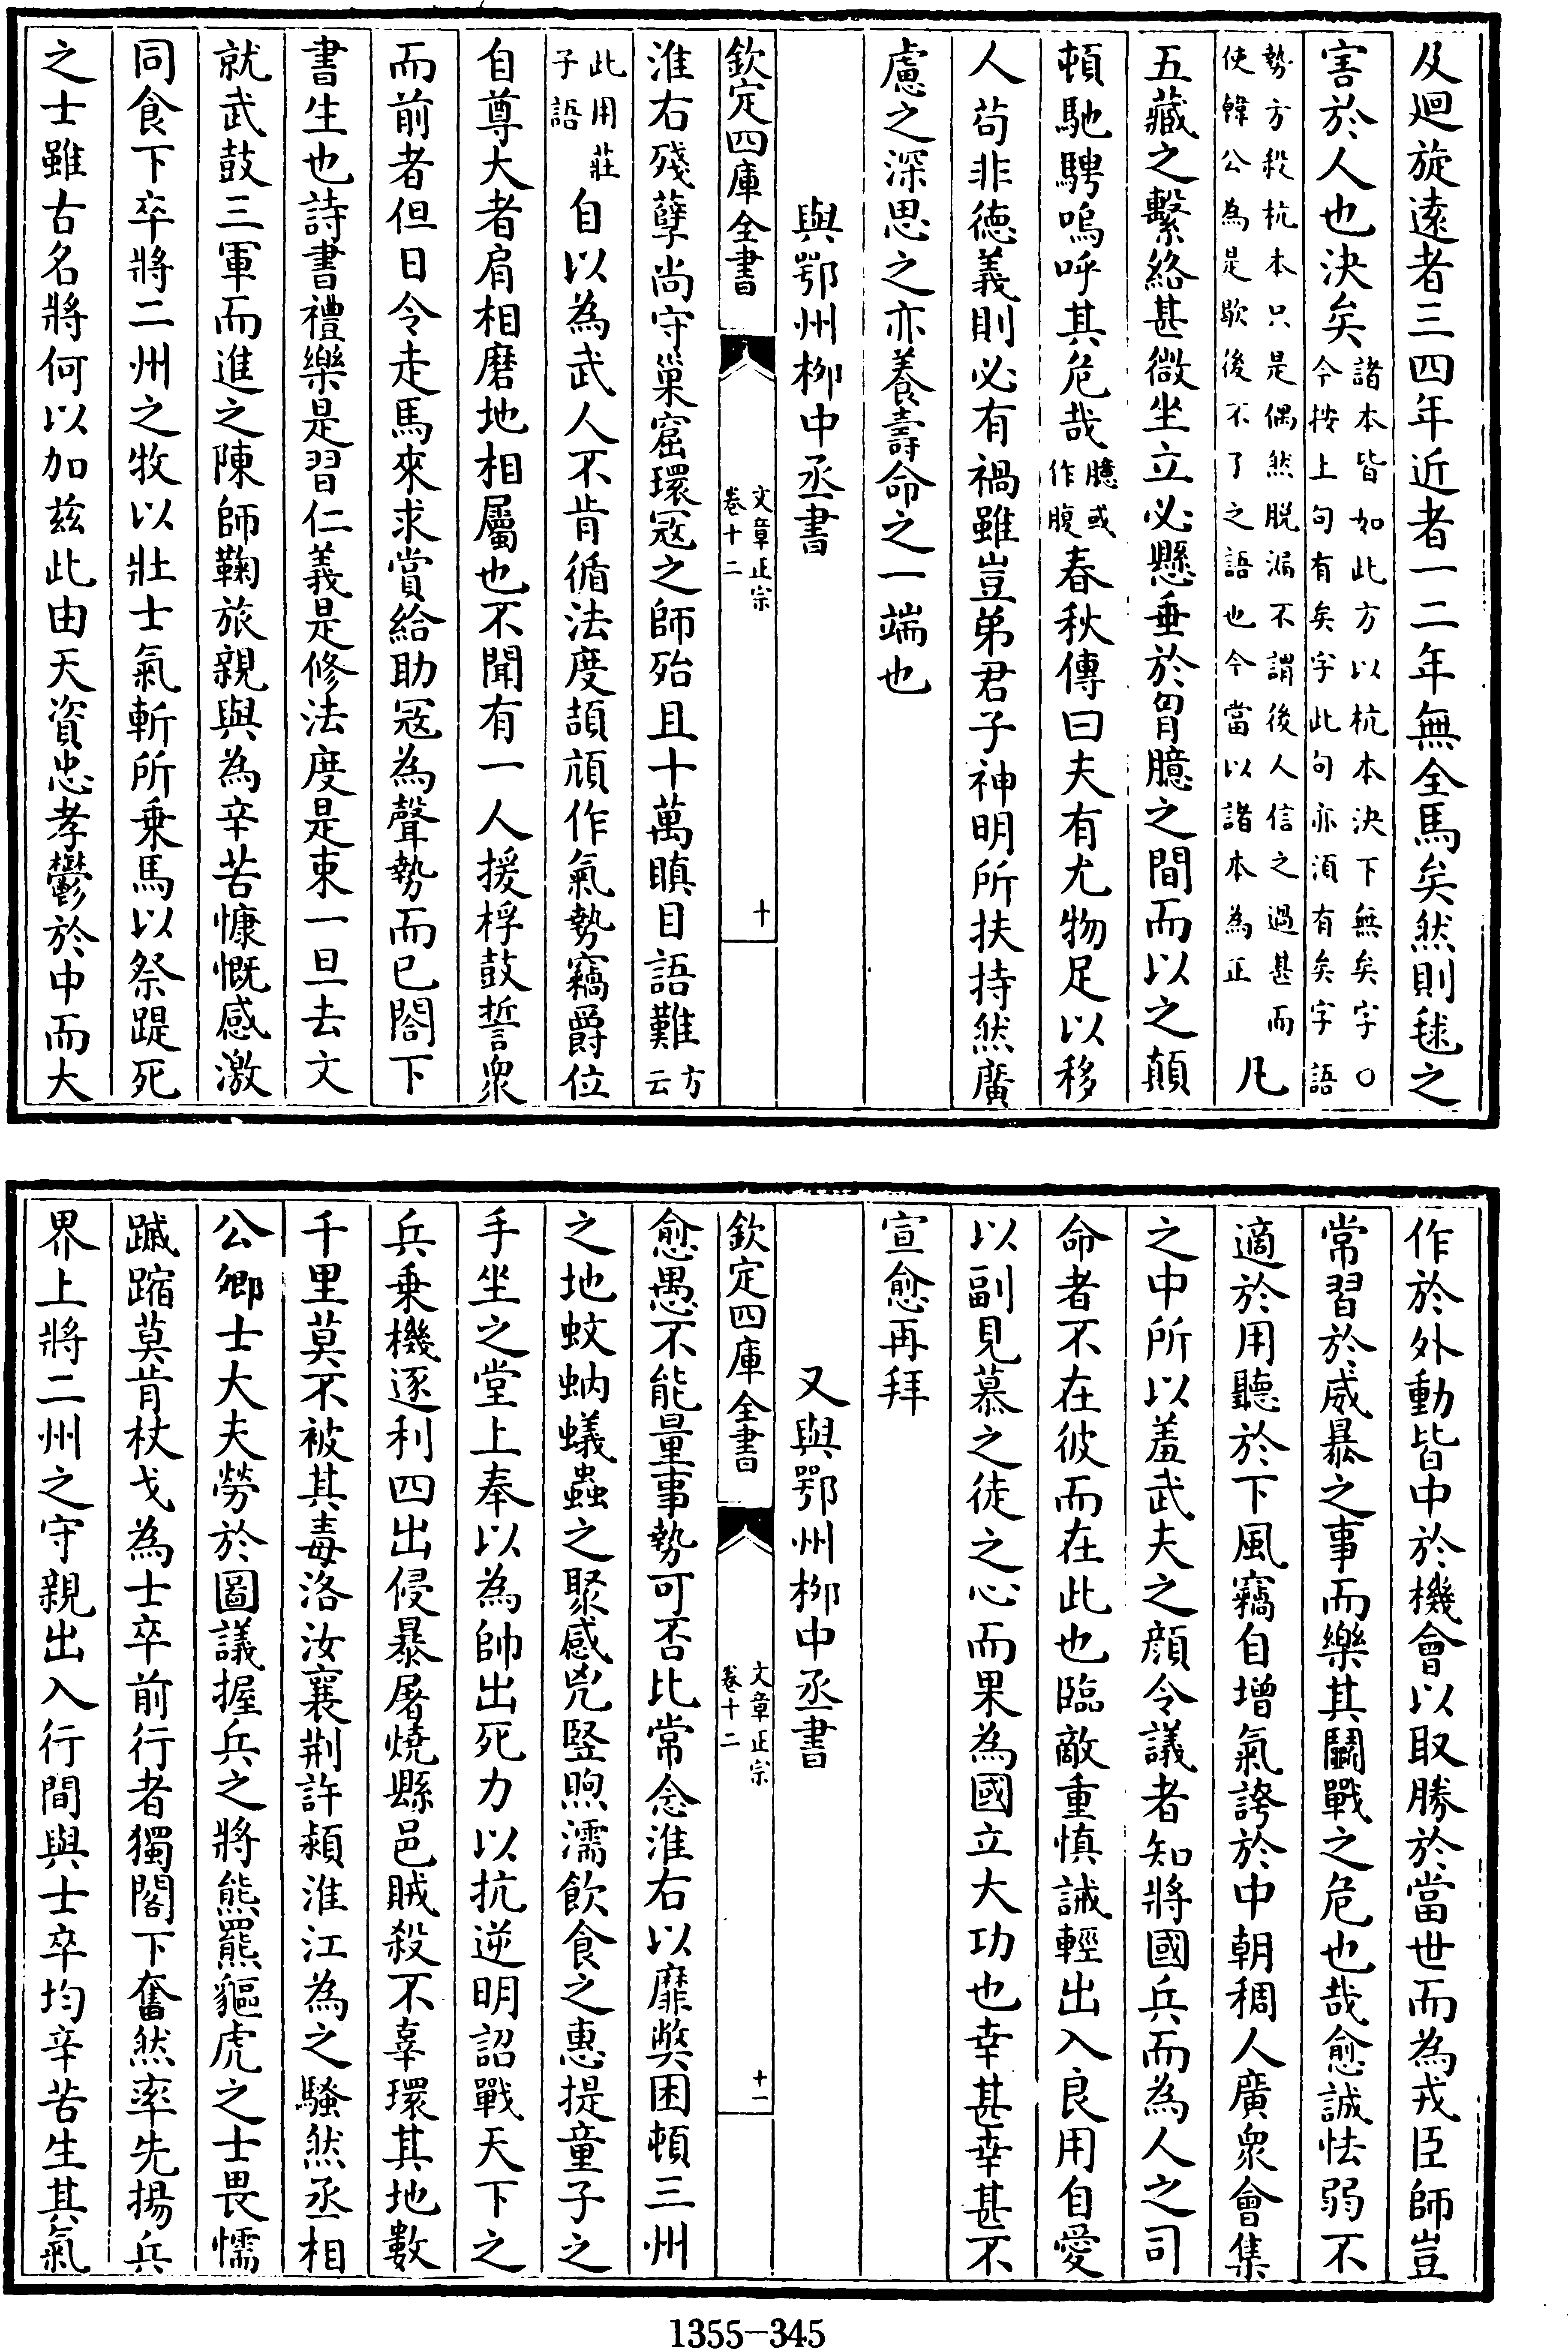 及廻旋遠者三四年近者一二年無全馬矣然則毬之
害於人也決矣諸本皆如此方以杭本決下無矣字○今按上句有矣字此句亦須有矣字語
勢方殺杭本只是偶然脱漏不謂後人信之過甚而使韓公為是歇後不了之語也今當以諸本為正凡
五藏之繫絡甚微坐立必懸垂於胷臆之間而以之顛
頓馳騁嗚呼其危哉臆或作腹春秋傳曰夫有尤物足以移
人苟非德義則必有禍雖豈弟君子神明所扶持然廣
慮之深思之亦養壽命之一端也
與鄂州栁中丞書
欽定四庫全書
文章正宗
卷十二
十
淮右殘孽尚守巢窟環冦之師殆且十萬瞋目語難方云
此用莊子語自以為武人不肯循法度頡頏作氣勢竊爵位
自尊大者肩相磨地相屬也不聞有一人援桴鼓誓衆
而前者但日令走馬來求賞給助冦為聲勢而已閤下
書生也詩書禮樂是習仁義是修法度是束一旦去文
就武鼓三軍而進之陳師鞠旅親與為辛苦慷慨感激
同食下卒將二州之牧以壯士氣斬所乗馬以祭踶死
之士雖古名將何以加兹此由天資忠孝鬱於中而大
作於外動皆中於機會以取勝於當世而為戎臣師豈
常習於威暴之事而樂其鬭戰之危也哉愈誠怯弱不
適於用聽於下風竊自增氣誇於中朝稠人廣衆會集
之中所以羞武夫之顔令議者知將國兵而為人之司
命者不在彼而在此也臨敵重慎誡輕出入良用自愛
以副見慕之徒之心而果為國立大功也幸甚幸甚不
宣愈再拜
又與鄂州栁中丞書
欽定四庫全書
文章正宗
卷十二
十一
愈愚不能量事勢可否比常念淮右以靡弊困頓三州
之地蚊蚋蟻蟲之聚感兇竪煦濡飲食之惠提童子之
手坐之堂上奉以為帥出死力以抗逆明詔戰天下之
兵乗機逐利四出侵暴屠燒縣邑賊殺不辜環其地數
千里莫不被其毒洛汝襄荆許潁淮江為之騷然丞相
公卿士大夫勞於圖議握兵之將熊羆貙虎之士畏懦
蹙蹜莫肯杖戈為士卒前行者獨閤下奮然率先揚兵
界上將二州之守親出入行間與士卒均辛苦生其氣
1355-345